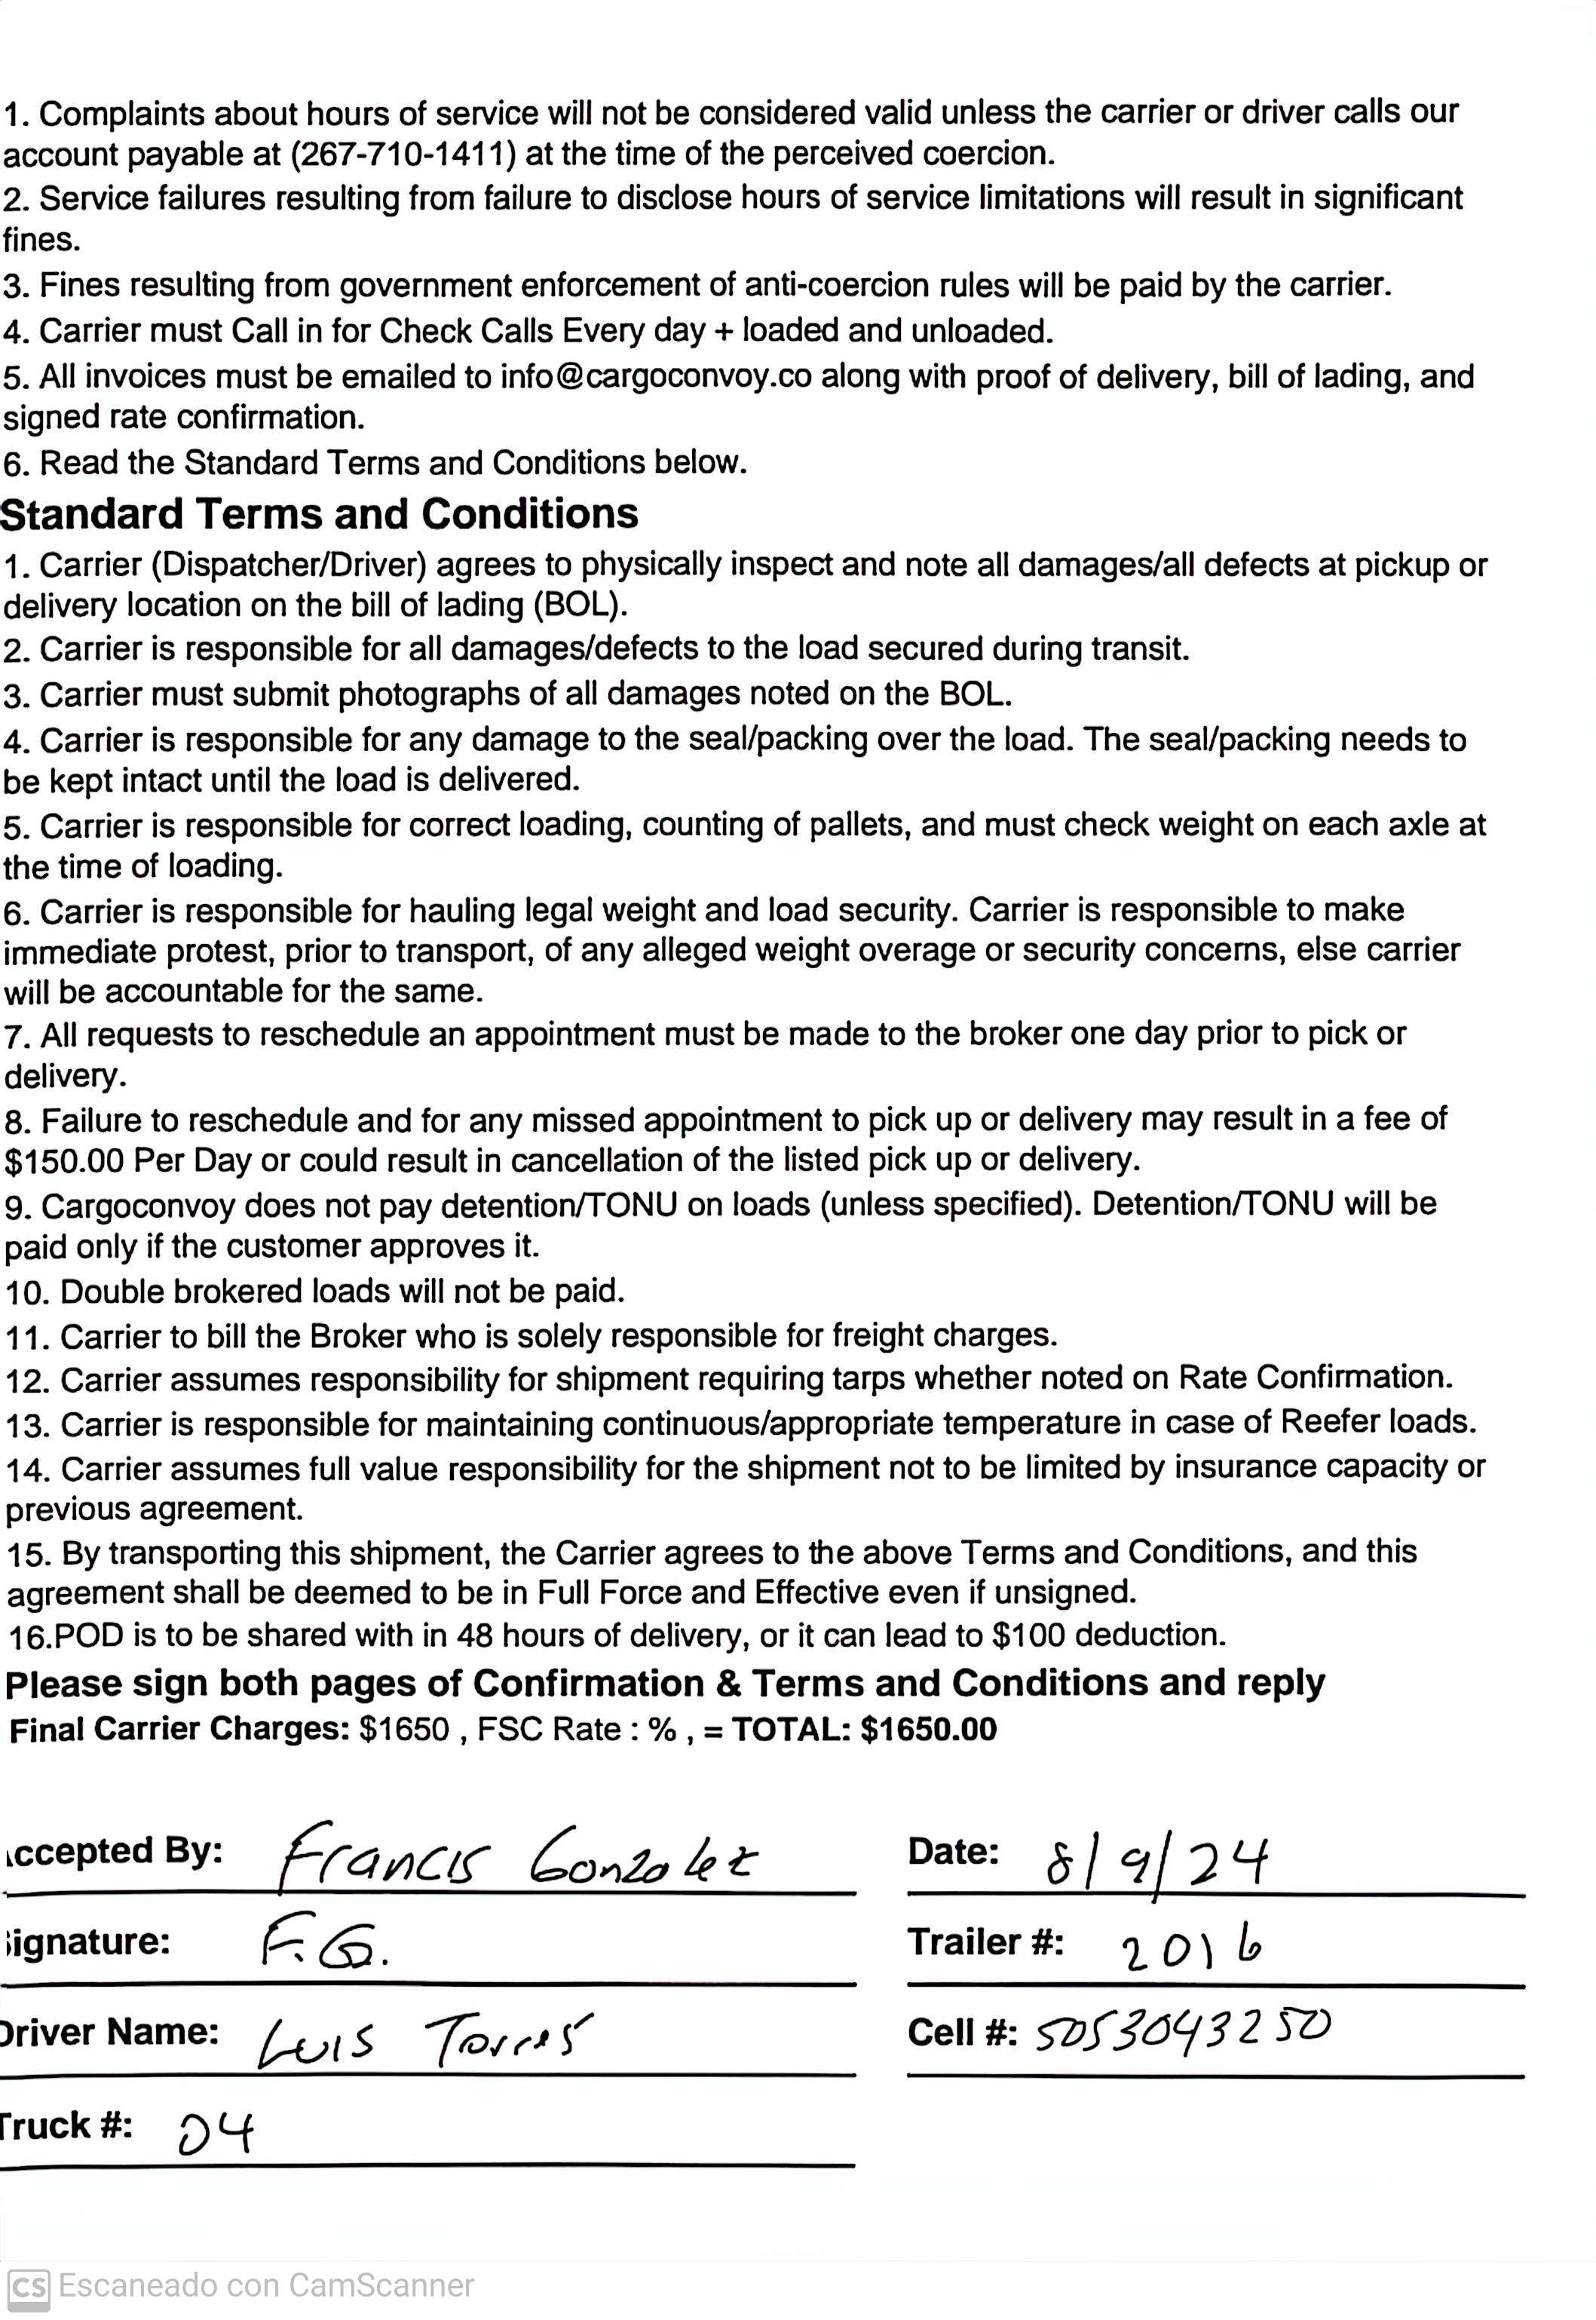 1. Complaints about hours of service will not be considered valid unless the carrier or driver calls our
account payable at (267-710-1411) at the time of the perceived coercion.
2. Service failures resulting from failure to disclose hours of service limitations will result in significant
fines.
3. Fines resulting from government enforcement of anti-coercion rules will be paid by the carrier.
4. Carrier must Call in for Check Calls Every day + loaded and unloaded.
5. All invoices must be emailed to info@cargoconvoy.co along with proof of delivery, bill of lading, and
signed rate confirmation.
6. Read the Standard Terms and Conditions below.
Standard Terms and Conditions
1. Carrier (Dispatcher/Driver) agrees to physically inspect and note all damages/all defects at pickup or
delivery location on the bill of lading (BOL).
2. Carrier is responsible for all damages/defects to the load secured during transit.
3. Carrier must submit photographs of all damages noted on the BOL.
4. Carrier is responsible for any damage to the seal/packing over the load. The seal/packing needs to
be kept intact until the load is delivered.
5. Carrier is responsible for correct loading, counting of pallets, and must check weight on each axle at
the time of loading.
6. Carrier is responsible for hauling legal weight and load security. Carrier is responsible to make
immediate protest, prior to transport, of any alleged weight overage or security concerns, else carrier
will be accountable for the same.
7. All requests to reschedule an appointment must be made to the broker one day prior to pick or
delivery.
8. Failure to reschedule and for any missed appointment to pick up or delivery may result in a fee of
$150.00 Per Day or could result in cancellation of the listed pick up or delivery.
9. Cargoconvoy does not pay detention/TONU on loads (unless specified). Detention/TONU will be
paid only if the customer approves it.
10. Double brokered loads will not be paid.
11. Carrier to bill the Broker who is solely responsible for freight charges.
12. Carrier assumes responsibility for shipment requiring tarps whether noted on Rate Confirmation.
13. Carrier is responsible for maintaining continuous/appropriate temperature in case of Reefer loads.
14. Carrier assumes full value responsibility for the shipment not to be limited by insurance capacity or
previous agreement.
15. By transporting this shipment, the Carrier agrees to the above Terms and Conditions, and this
agreement shall be deemed to be in Full Force and Effective even if unsigned.
16.POD is to be shared with in 48 hours of delivery, or it can lead to $100 deduction.
Please sign both pages of Confirmation & Terms and Conditions and reply
Final Carrier Charges: $1650 , FSC Rate : % , = TOTAL: $1650.00
ccepted By: Francis Gonzalez Date: 8/9/24
ignature: F.G. Trailer #: 2016
Driver Name: Luis Torres Cell #: 5053043250
Truck #: 04
CS Escaneado con CamScanner